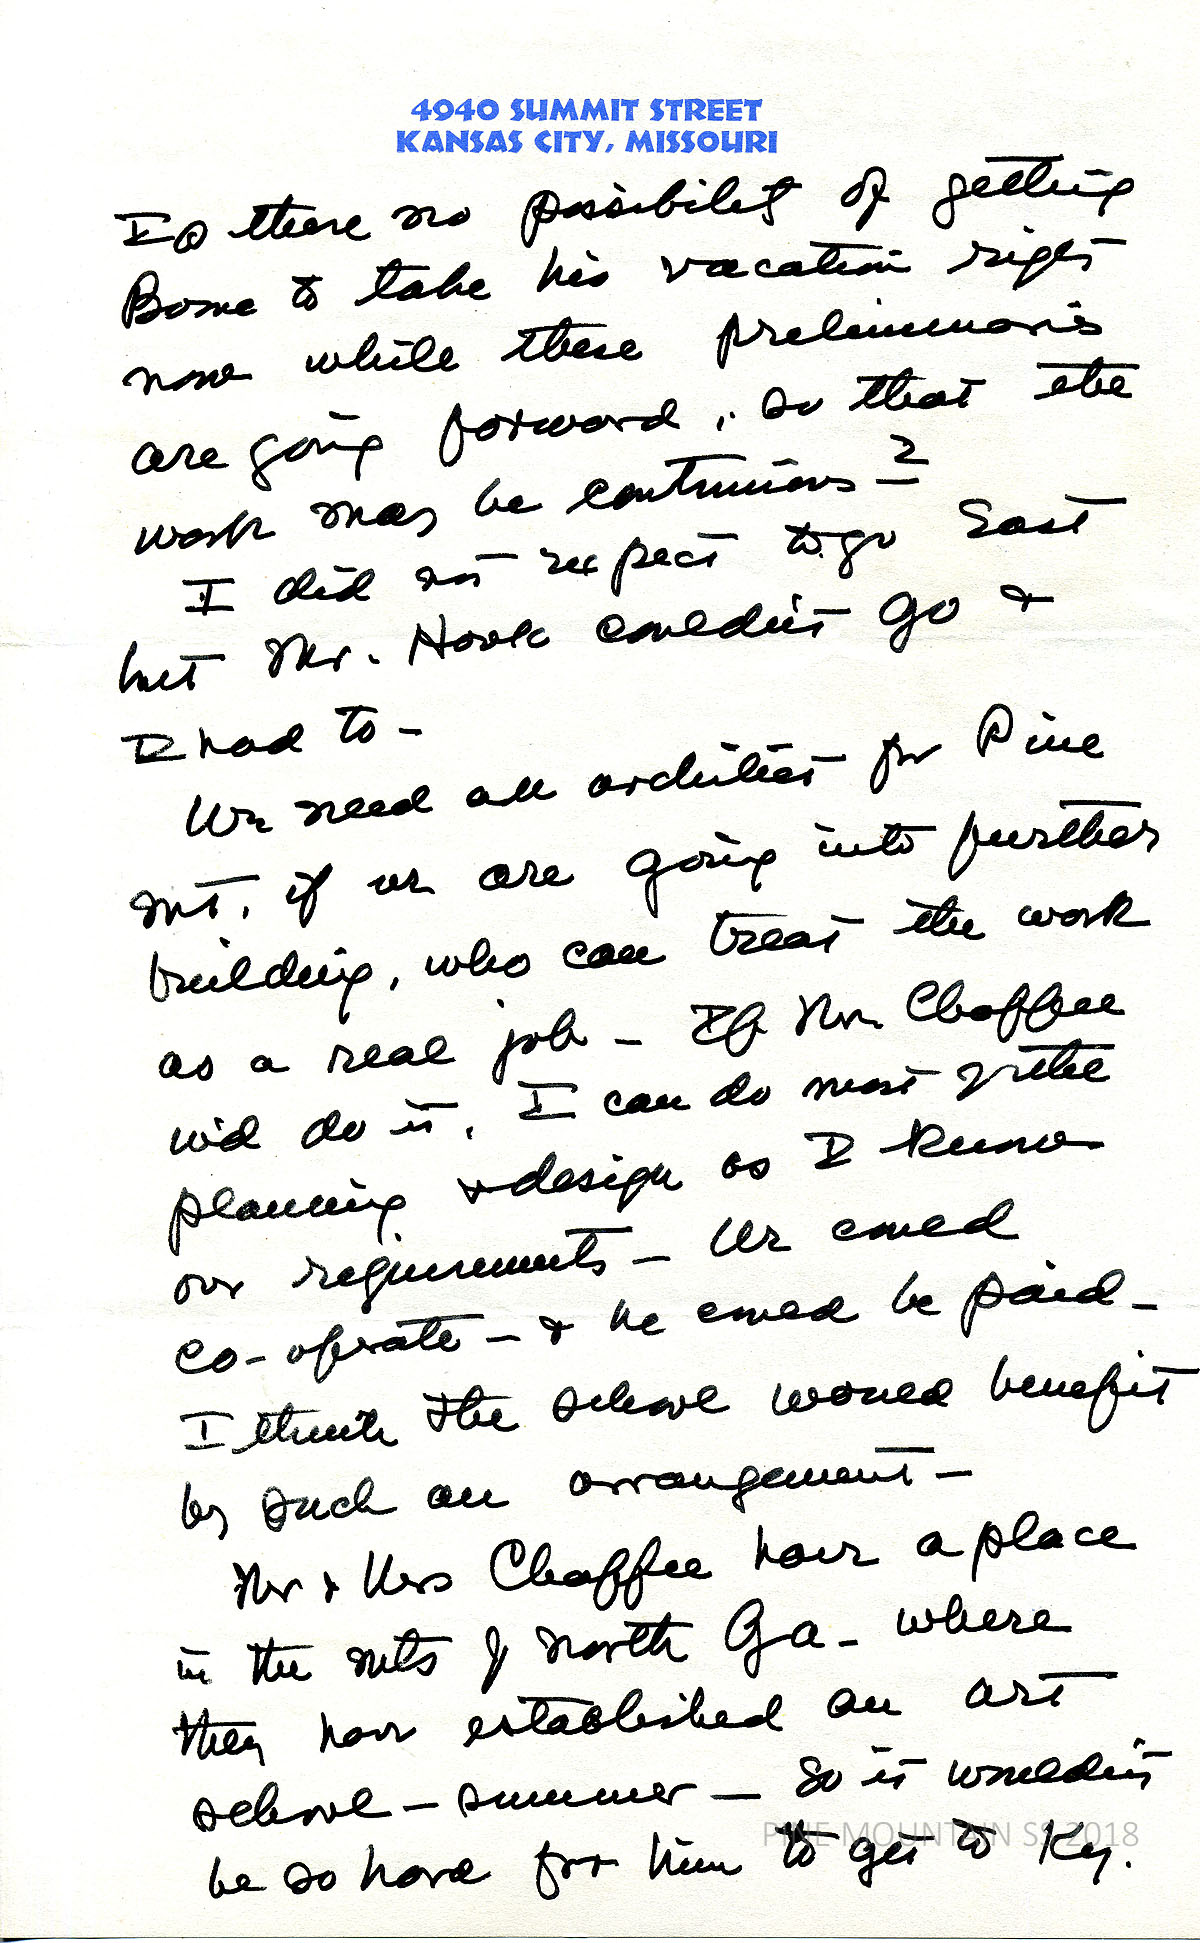 4940 SUMMIT STREET
KANSAS CITY, MISSOURI
Is there no possibility of getting
Bome to take his vacation right
now while these preliminaries
are going forward, so that the
work may be continuous?
I did not expect to go East
but Mr. Hook couldn't go &
I had to -
We need an architect for Pine
Mt. if we are going into further
building, who can treat the work
as a real job - If Mr. Chaffee
w'd do it, I can do most of the
planning & design as I know
our requirements - We could
co-operate - & he could be paid -
I think the school would benefit
by such an arrangement -
Mr & Mrs Chaffee have a place
in the mts of North Ga - where
they have established an art
school - summer - So it wouldn't
be so hard for him to get to Ky.
PINE MOUNTAIN SS 2018